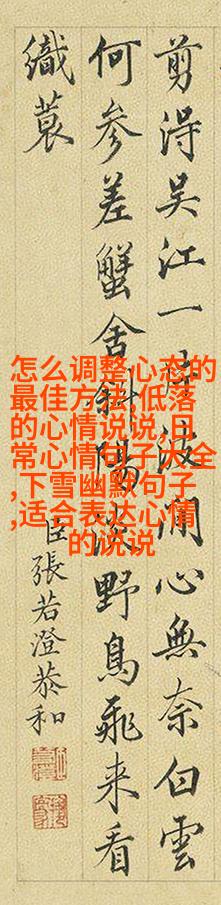 剪淂吴江一波閒心無奈白雲
何参差蟹舍斜陽野鳥飛来看
織蓑
臣張若澄恭和
怎么调整心态的
最佳方法,低落
的心情说说,日
常心情句子大全
,下雪幽默句子
,适合表达心情
的说说